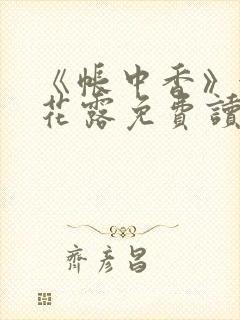 《帳中香》
花露免費讀
齊彥昌